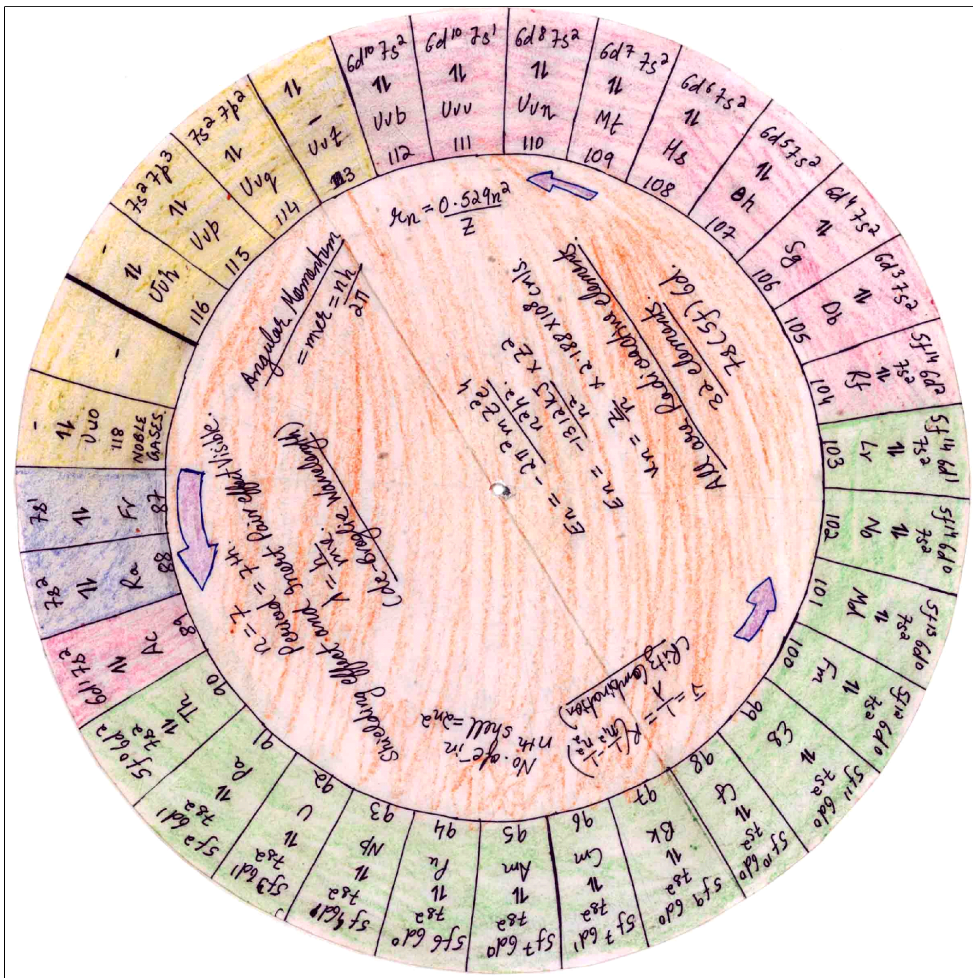 7s¹
⇅
Fr
87
7s²
⇅
Ra
88
6d¹7s²
⇅
Ac
89
5f⁰6d²
7s²
⇅
Th
90
5f²6d¹
7s²
⇅
Pa
91
5f³6d¹
7s²
⇅
U
92
5f⁴6d¹
7s²
⇅
Np
93
5f⁶6d⁰
7s²
⇅
Pu
94
5f⁷6d⁰
7s²
⇅
Am
95
5f⁷6d¹
7s²
⇅
Cm
96
5f⁹6d⁰
7s²
⇅
Bk
97
5f¹⁰6d⁰
7s²
⇅
Cf
98
5f¹¹6d⁰
7s²
⇅
Es
99
5f¹²6d⁰
7s²
⇅
Fm
100
5f¹³6d⁰
7s²
⇅
Md
101
5f¹⁴6d⁰
7s²
⇅
No
102
5f¹⁴6d¹
7s²
⇅
Lr
103
5f¹⁴6d²
7s²
⇅
Rf
104
6d³7s²
⇅
Db
105
6d⁴7s²
⇅
Sg
106
6d⁵7s²
⇅
Bh
107
6d⁶7s²
⇅
Hs
108
6d⁷7s²
⇅
Mt
109
6d⁸7s²
⇅
Uun
110
6d¹⁰7s¹
⇅
Uuu
111
6d¹⁰7s²
⇅
Uub
112
⇅
-
Uut
113
7s²7p²
⇅
Uuq
114
7s²7p³
⇅
Uup
115
-
⇅
Uuh
116
-
-
-
⇅
Uuo
118
NOBLE
GASES.
rn = 0.529n²/Z
Angular Momentum
= mvr = nh/2π
All are Radioactive elements
32 elements.
7s(5f)6d.
vn = Z/n × 2.188×10⁸ cm/s.
En = -1312kJ/n² × Z²
En = -2π²mZ²e⁴/n²h².
n = 7
Period = 7th.
Shielding effect and Inert Pair effect Visible.
λ = h/mc
(de-Broglie Wavelength)
No. of e⁻ in
nth shell = 2n²
ν̄ = 1/λ = R(1/n₁² - 1/n₂²)
(Ritz Combination)